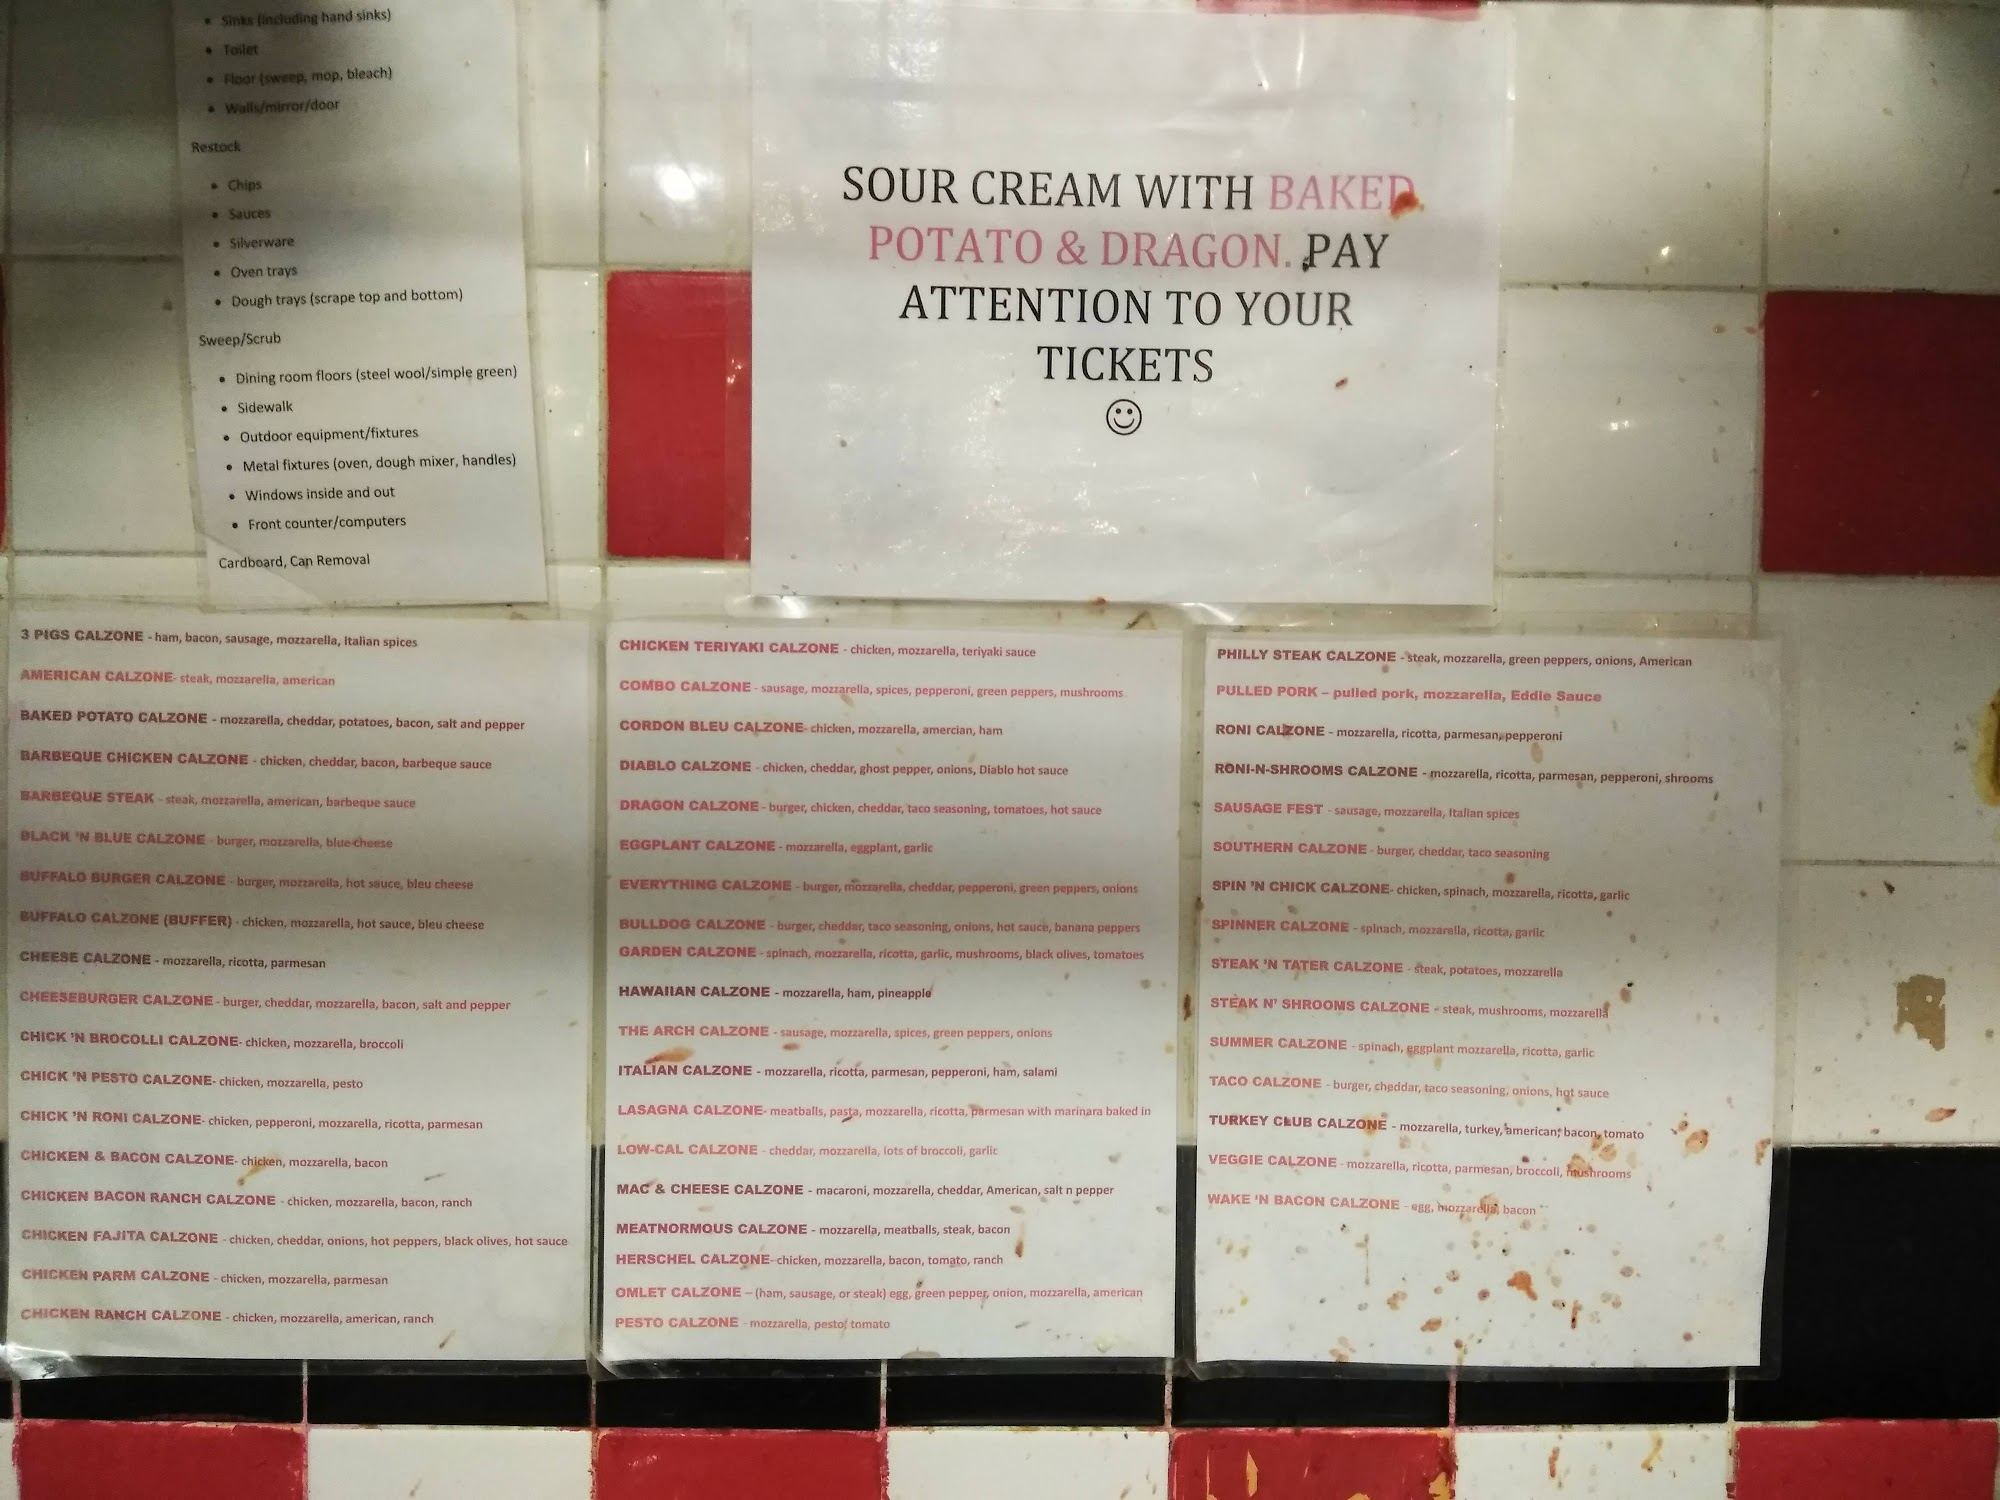 • Sinks (including hand sinks)
• Toilet
• Floor (sweep, mop, bleach)
• Walls/mirror/door
Restock
• Chips
• Sauces
• Silverware
• Oven trays
• Dough trays (scrape top and bottom)
Sweep/Scrub
• Dining room floors (steel wool/simple green)
• Sidewalk
• Outdoor equipment/fixtures
• Metal fixtures (oven, dough mixer, handles)
• Windows inside and out
• Front counter/computers
Cardboard, Can Removal
SOUR CREAM WITH BAKED
POTATO & DRAGON. PAY
ATTENTION TO YOUR
TICKETS
☺
3 PIGS CALZONE - ham, bacon, sausage, mozzarella, Italian spices
AMERICAN CALZONE- steak, mozzarella, american
BAKED POTATO CALZONE - mozzarella, cheddar, potatoes, bacon, salt and pepper
BARBEQUE CHICKEN CALZONE - chicken, cheddar, bacon, barbeque sauce
BARBEQUE STEAK - steak, mozzarella, american, barbeque sauce
BLACK 'N BLUE CALZONE - burger, mozzarella, blue cheese
BUFFALO BURGER CALZONE - burger, mozzarella, hot sauce, bleu cheese
BUFFALO CALZONE (BUFFER) - chicken, mozzarella, hot sauce, bleu cheese
CHEESE CALZONE - mozzarella, ricotta, parmesan
CHEESEBURGER CALZONE - burger, cheddar, mozzarella, bacon, salt and pepper
CHICK 'N BROCOLLI CALZONE- chicken, mozzarella, broccoli
CHICK 'N PESTO CALZONE- chicken, mozzarella, pesto
CHICK 'N RONI CALZONE- chicken, pepperoni, mozzarella, ricotta, parmesan
CHICKEN & BACON CALZONE- chicken, mozzarella, bacon
CHICKEN BACON RANCH CALZONE - chicken, mozzarella, bacon, ranch
CHICKEN FAJITA CALZONE - chicken, cheddar, onions, hot peppers, black olives, hot sauce
CHICKEN PARM CALZONE - chicken, mozzarella, parmesan
CHICKEN RANCH CALZONE - chicken, mozzarella, american, ranch
CHICKEN TERIYAKI CALZONE - chicken, mozzarella, teriyaki sauce
COMBO CALZONE - sausage, mozzarella, spices, pepperoni, green peppers, mushrooms
CORDON BLEU CALZONE- chicken, mozzarella, amercian, ham
DIABLO CALZONE - chicken, cheddar, ghost pepper, onions, Diablo hot sauce
DRAGON CALZONE - burger, chicken, cheddar, taco seasoning, tomatoes, hot sauce
EGGPLANT CALZONE - mozzarella, eggplant, garlic
EVERYTHING CALZONE - burger, mozzarella, cheddar, pepperoni, green peppers, onions
BULLDOG CALZONE - burger, cheddar, taco seasoning, onions, hot sauce, banana peppers
GARDEN CALZONE - spinach, mozzarella, ricotta, garlic, mushrooms, black olives, tomatoes
HAWAIIAN CALZONE - mozzarella, ham, pineapple
THE ARCH CALZONE - sausage, mozzarella, spices, green peppers, onions
ITALIAN CALZONE - mozzarella, ricotta, parmesan, pepperoni, ham, salami
LASAGNA CALZONE- meatballs, pasta, mozzarella, ricotta, parmesan with marinara baked in
LOW-CAL CALZONE - cheddar, mozzarella, lots of broccoli, garlic
MAC & CHEESE CALZONE - macaroni, mozzarella, cheddar, American, salt n pepper
MEATNORMOUS CALZONE - mozzarella, meatballs, steak, bacon
HERSCHEL CALZONE- chicken, mozzarella, bacon, tomato, ranch
OMLET CALZONE – (ham, sausage, or steak) egg, green pepper, onion, mozzarella, american
PESTO CALZONE - mozzarella, pesto, tomato
PHILLY STEAK CALZONE - steak, mozzarella, green peppers, onions, American
PULLED PORK – pulled pork, mozzarella, Eddie Sauce
RONI CALZONE - mozzarella, ricotta, parmesan, pepperoni
RONI-N-SHROOMS CALZONE - mozzarella, ricotta, parmesan, pepperoni, shrooms
SAUSAGE FEST - sausage, mozzarella, Italian spices
SOUTHERN CALZONE - burger, cheddar, taco seasoning
SPIN 'N CHICK CALZONE- chicken, spinach, mozzarella, ricotta, garlic
SPINNER CALZONE - spinach, mozzarella, ricotta, garlic
STEAK 'N TATER CALZONE - steak, potatoes, mozzarella
STEAK N' SHROOMS CALZONE - steak, mushrooms, mozzarella
SUMMER CALZONE - spinach, eggplant mozzarella, ricotta, garlic
TACO CALZONE - burger, cheddar, taco seasoning, onions, hot sauce
TURKEY CLUB CALZONE - mozzarella, turkey, american, bacon, tomato
VEGGIE CALZONE - mozzarella, ricotta, parmesan, broccoli, mushrooms
WAKE 'N BACON CALZONE - egg, mozzarella, bacon